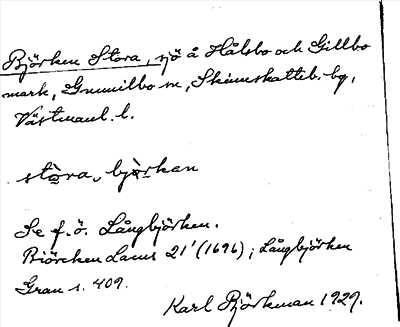 Björken Stora, sjö å Hålsbo och Gillbo
mark, Gunnilbo sn, Skinnskatteb. bg,
Västmanl. l.
stòra, bjòrkan
Se f.ö. Långbjörken.
Biörcken Lacus 21' (1696); Långbjörken
Gran s. 409.
Karl Björkman 1929.